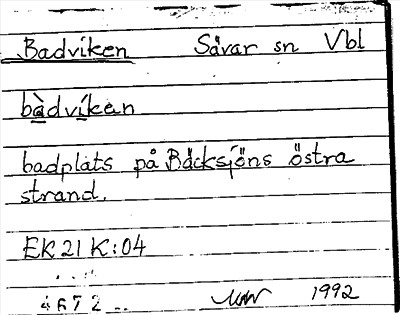 Badviken Sävar sn Vbl
bàdvikan
badplats på Bäcksjöns östra
strand.
EK 21 K:04
4672 1992